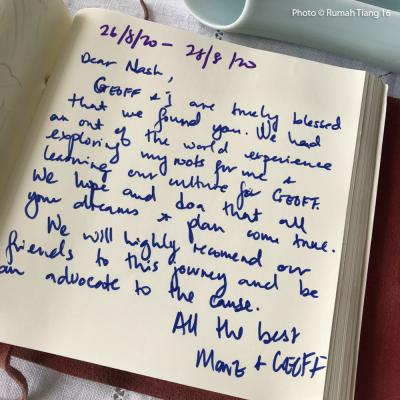 Photo © Rumah Tiang 16
26/8/20 – 28/8/20
Dear Nash,
GEOFF & I are truely blessed
that we found you. We had
an out of the world experience
exploring my roots for me &
learning our culture for GEOFF.
We hope and doa that all
your dreams & plan come true.
We will highly recomend our
friends to this journey and be
an advocate to the cause.
All the best
+ GEOFF